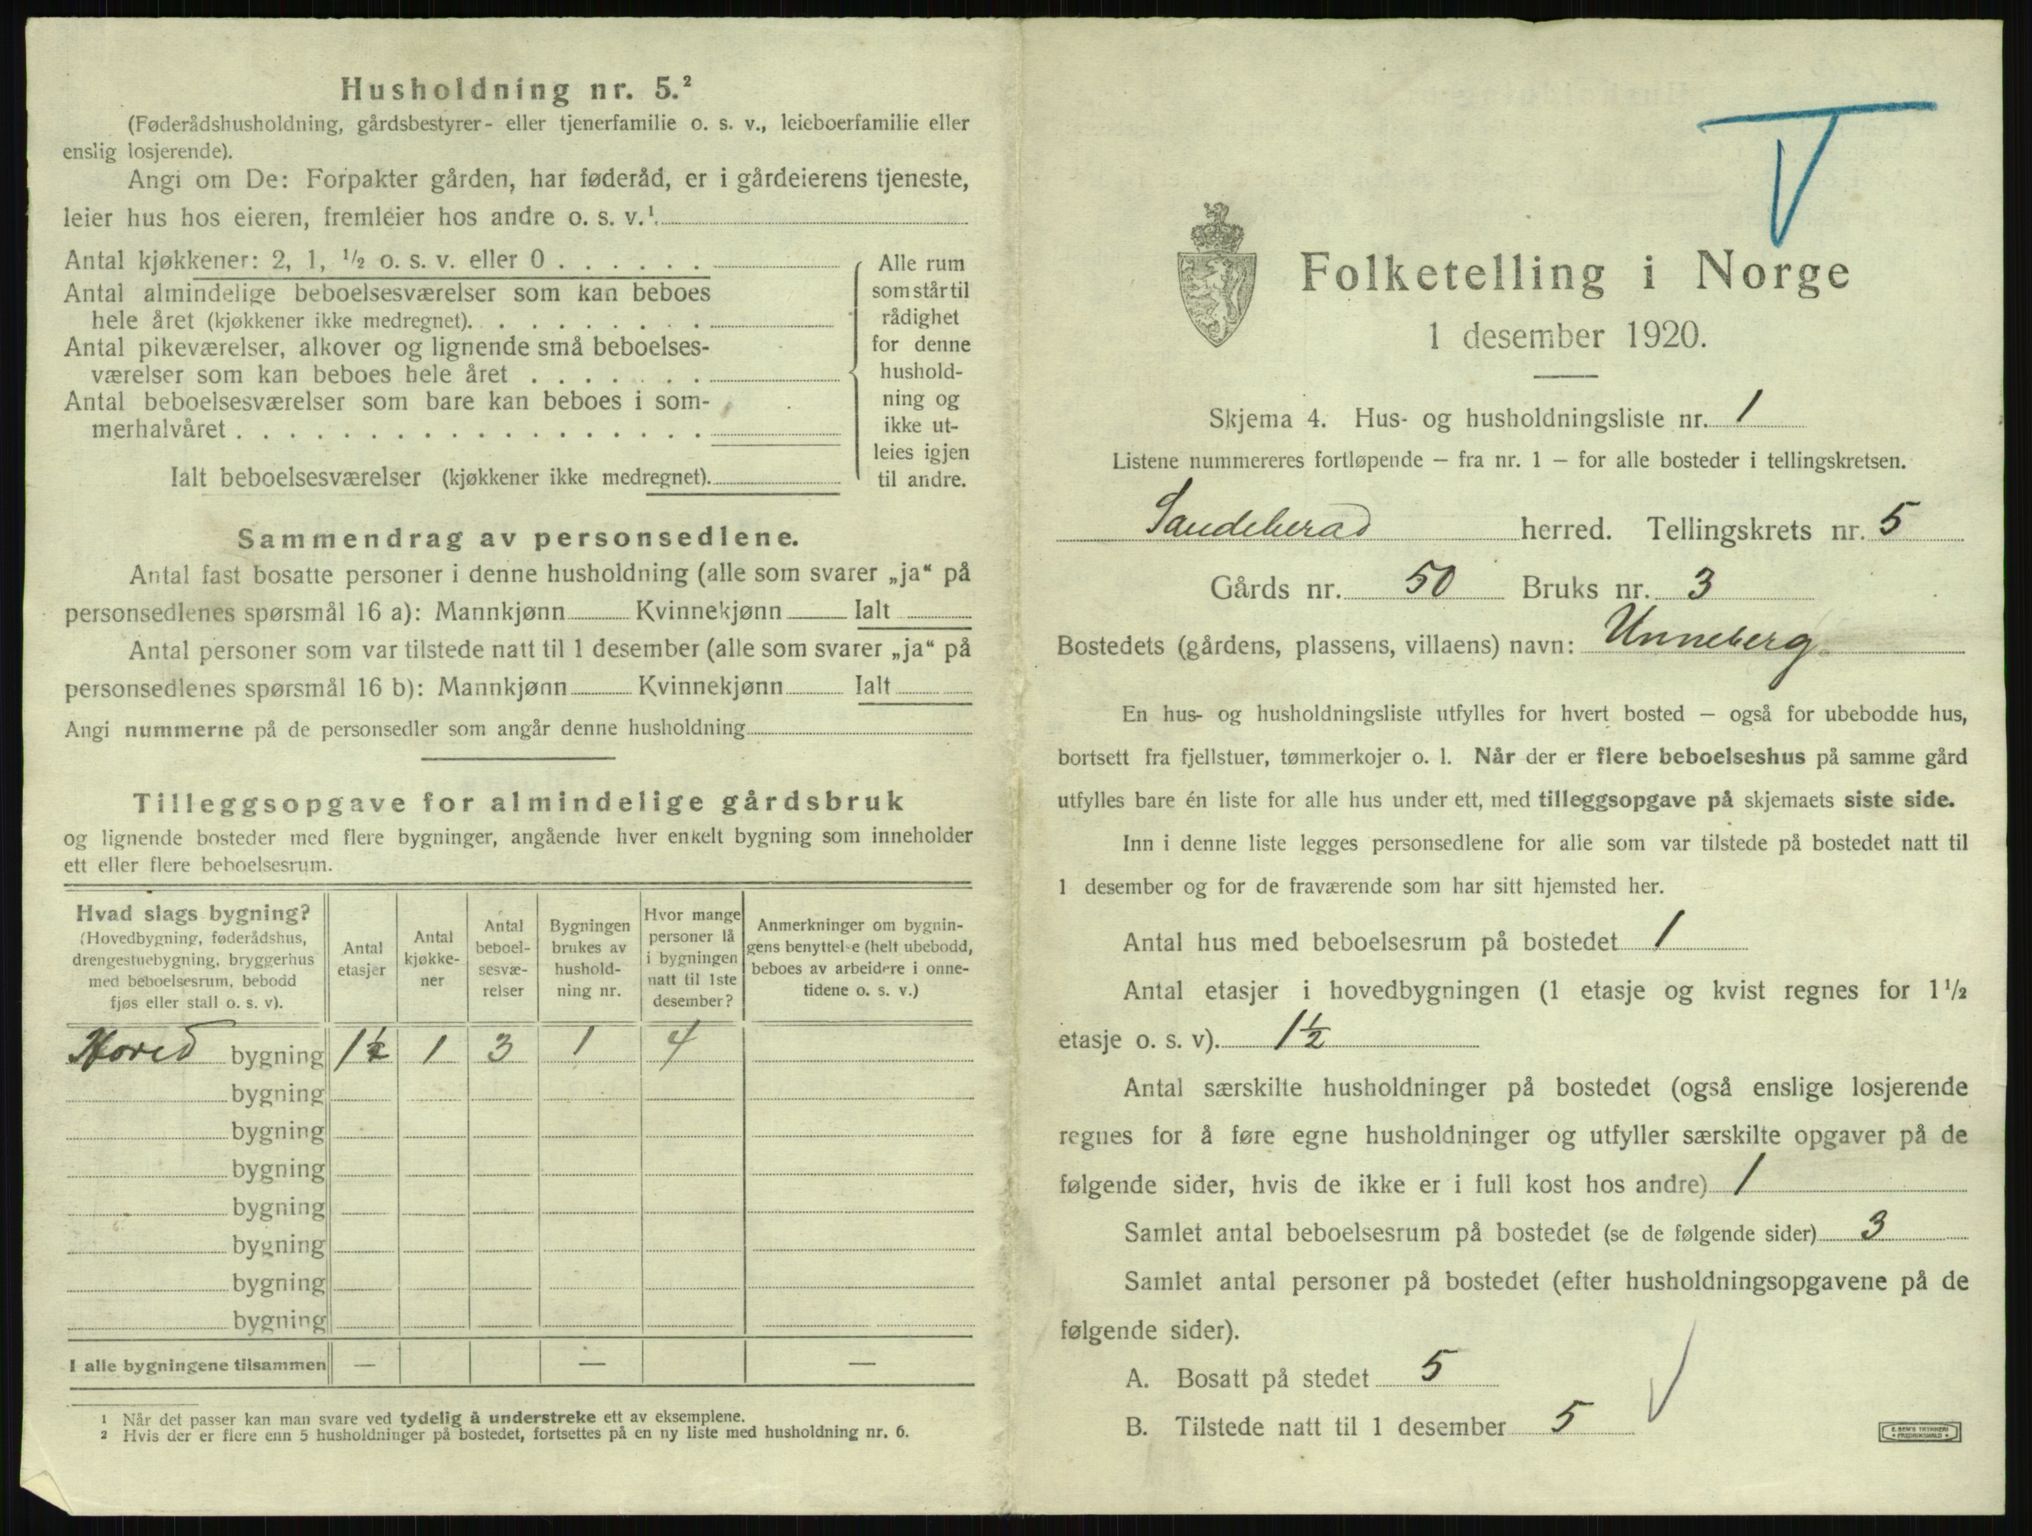 Husholdning nr. 5.²
(Føderådshusholdning, gårdsbestyrer- eller tjenerfamilie o. s. v., leieboerfamilie eller
enslig losjerende).
Angi om De: Forpakter gården, har føderåd, er i gårdeierens tjeneste,
leier hus hos eieren, fremleier hos andre o. s. v.¹
Antal kjøkkener: 2, 1, ½ o. s. v. eller 0 . . . . . .
Antal almindelige beboelsesværelser som kan beboes
hele året (kjøkkener ikke medregnet). . . . . . . . .
Antal pikeværelser, alkover og lignende små beboelses-
værelser som kan beboes hele året . . . . . . .
Antal beboelsesværelser som bare kan beboes i som-
merhalvåret . . . . . . . . . . . . . . . . . .
Ialt beboelsesværelser (kjøkkener ikke medregnet).
Alle rum
som står til
rådighet
for denne
hushold-
ning og
ikke ut-
leies igjen
til andre.
Sammendrag av personsedlene.
Antal fast bosatte personer i denne husholdning (alle som svarer „ja“ på
personsedlenes spørsmål 16 a): Mannkjønn Kvinnekjønn Ialt
Antal personer som var tilstede natt til 1 desember (alle som svarer „ja“ på
personsedlenes spørsmål 16 b): Mannkjønn Kvinnekjønn Ialt
Angi nummerne på de personsedler som angår denne husholdning
Tilleggsopgave for almindelige gårdsbruk
og lignende bosteder med flere bygninger, angående hver enkelt bygning som inneholder
ett eller flere beboelsesrum.
Hvad slags bygning?
(Hovedbygning, føderådshus,
drengestuebygning, bryggerhus
med beboelsesrum, bebodd
fjøs eller stall o. s. v).
Antal
etasjer
Antal
kjøkke-
ner
Antal
beboel-
sesvæ-
relser
Bygningen
brukes av
hushold-
ning nr.
Hvor mange
personer lå
i bygningen
natt til 1ste
desember?
Anmerkninger om bygnin-
gens benyttelse (helt ubebodd,
beboes av arbeidere i onne-
tidene o. s. v.)
Hoved bygning 1½ 1 3 1 4
bygning
bygning
bygning
bygning
bygning
bygning
bygning
I alle bygningene tilsammen — — —
¹ Når det passer kan man svare ved tydelig å understreke ett av eksemplene.
² Hvis der er flere enn 5 husholdninger på bostedet, fortsettes på en ny liste med husholdning nr. 6.
Folketelling i Norge
1 desember 1920.
Skjema 4. Hus- og husholdningsliste nr. 1
Listene nummereres fortløpende — fra nr. 1 — for alle bosteder i tellingskretsen.
Sandeherad herred. Tellingskrets nr. 5
Gårds nr. 50 Bruks nr. 3
Bostedets (gårdens, plassens, villaens) navn: Unneberg
En hus- og husholdningsliste utfylles for hvert bosted — også for ubebodde hus,
bortsett fra fjellstuer, tømmerkojer o. l. Når der er flere beboelseshus på samme gård
utfylles bare én liste for alle hus under ett, med tilleggsopgave på skjemaets siste side.
Inn i denne liste legges personsedlene for alle som var tilstede på bostedet natt til
1 desember og for de fraværende som har sitt hjemsted her.
Antal hus med beboelsesrum på bostedet 1
Antal etasjer i hovedbygningen (1 etasje og kvist regnes for 1½
etasje o. s. v). 1½
Antal særskilte husholdninger på bostedet (også enslige losjerende
regnes for å føre egne husholdninger og utfyller særskilte opgaver på de
følgende sider, hvis de ikke er i full kost hos andre) 1
Samlet antal beboelsesrum på bostedet (se de følgende sider) 3
Samlet antal personer på bostedet (efter husholdningsopgavene på de
følgende sider).
A. Bosatt på stedet 5
B. Tilstede natt til 1 desember 5